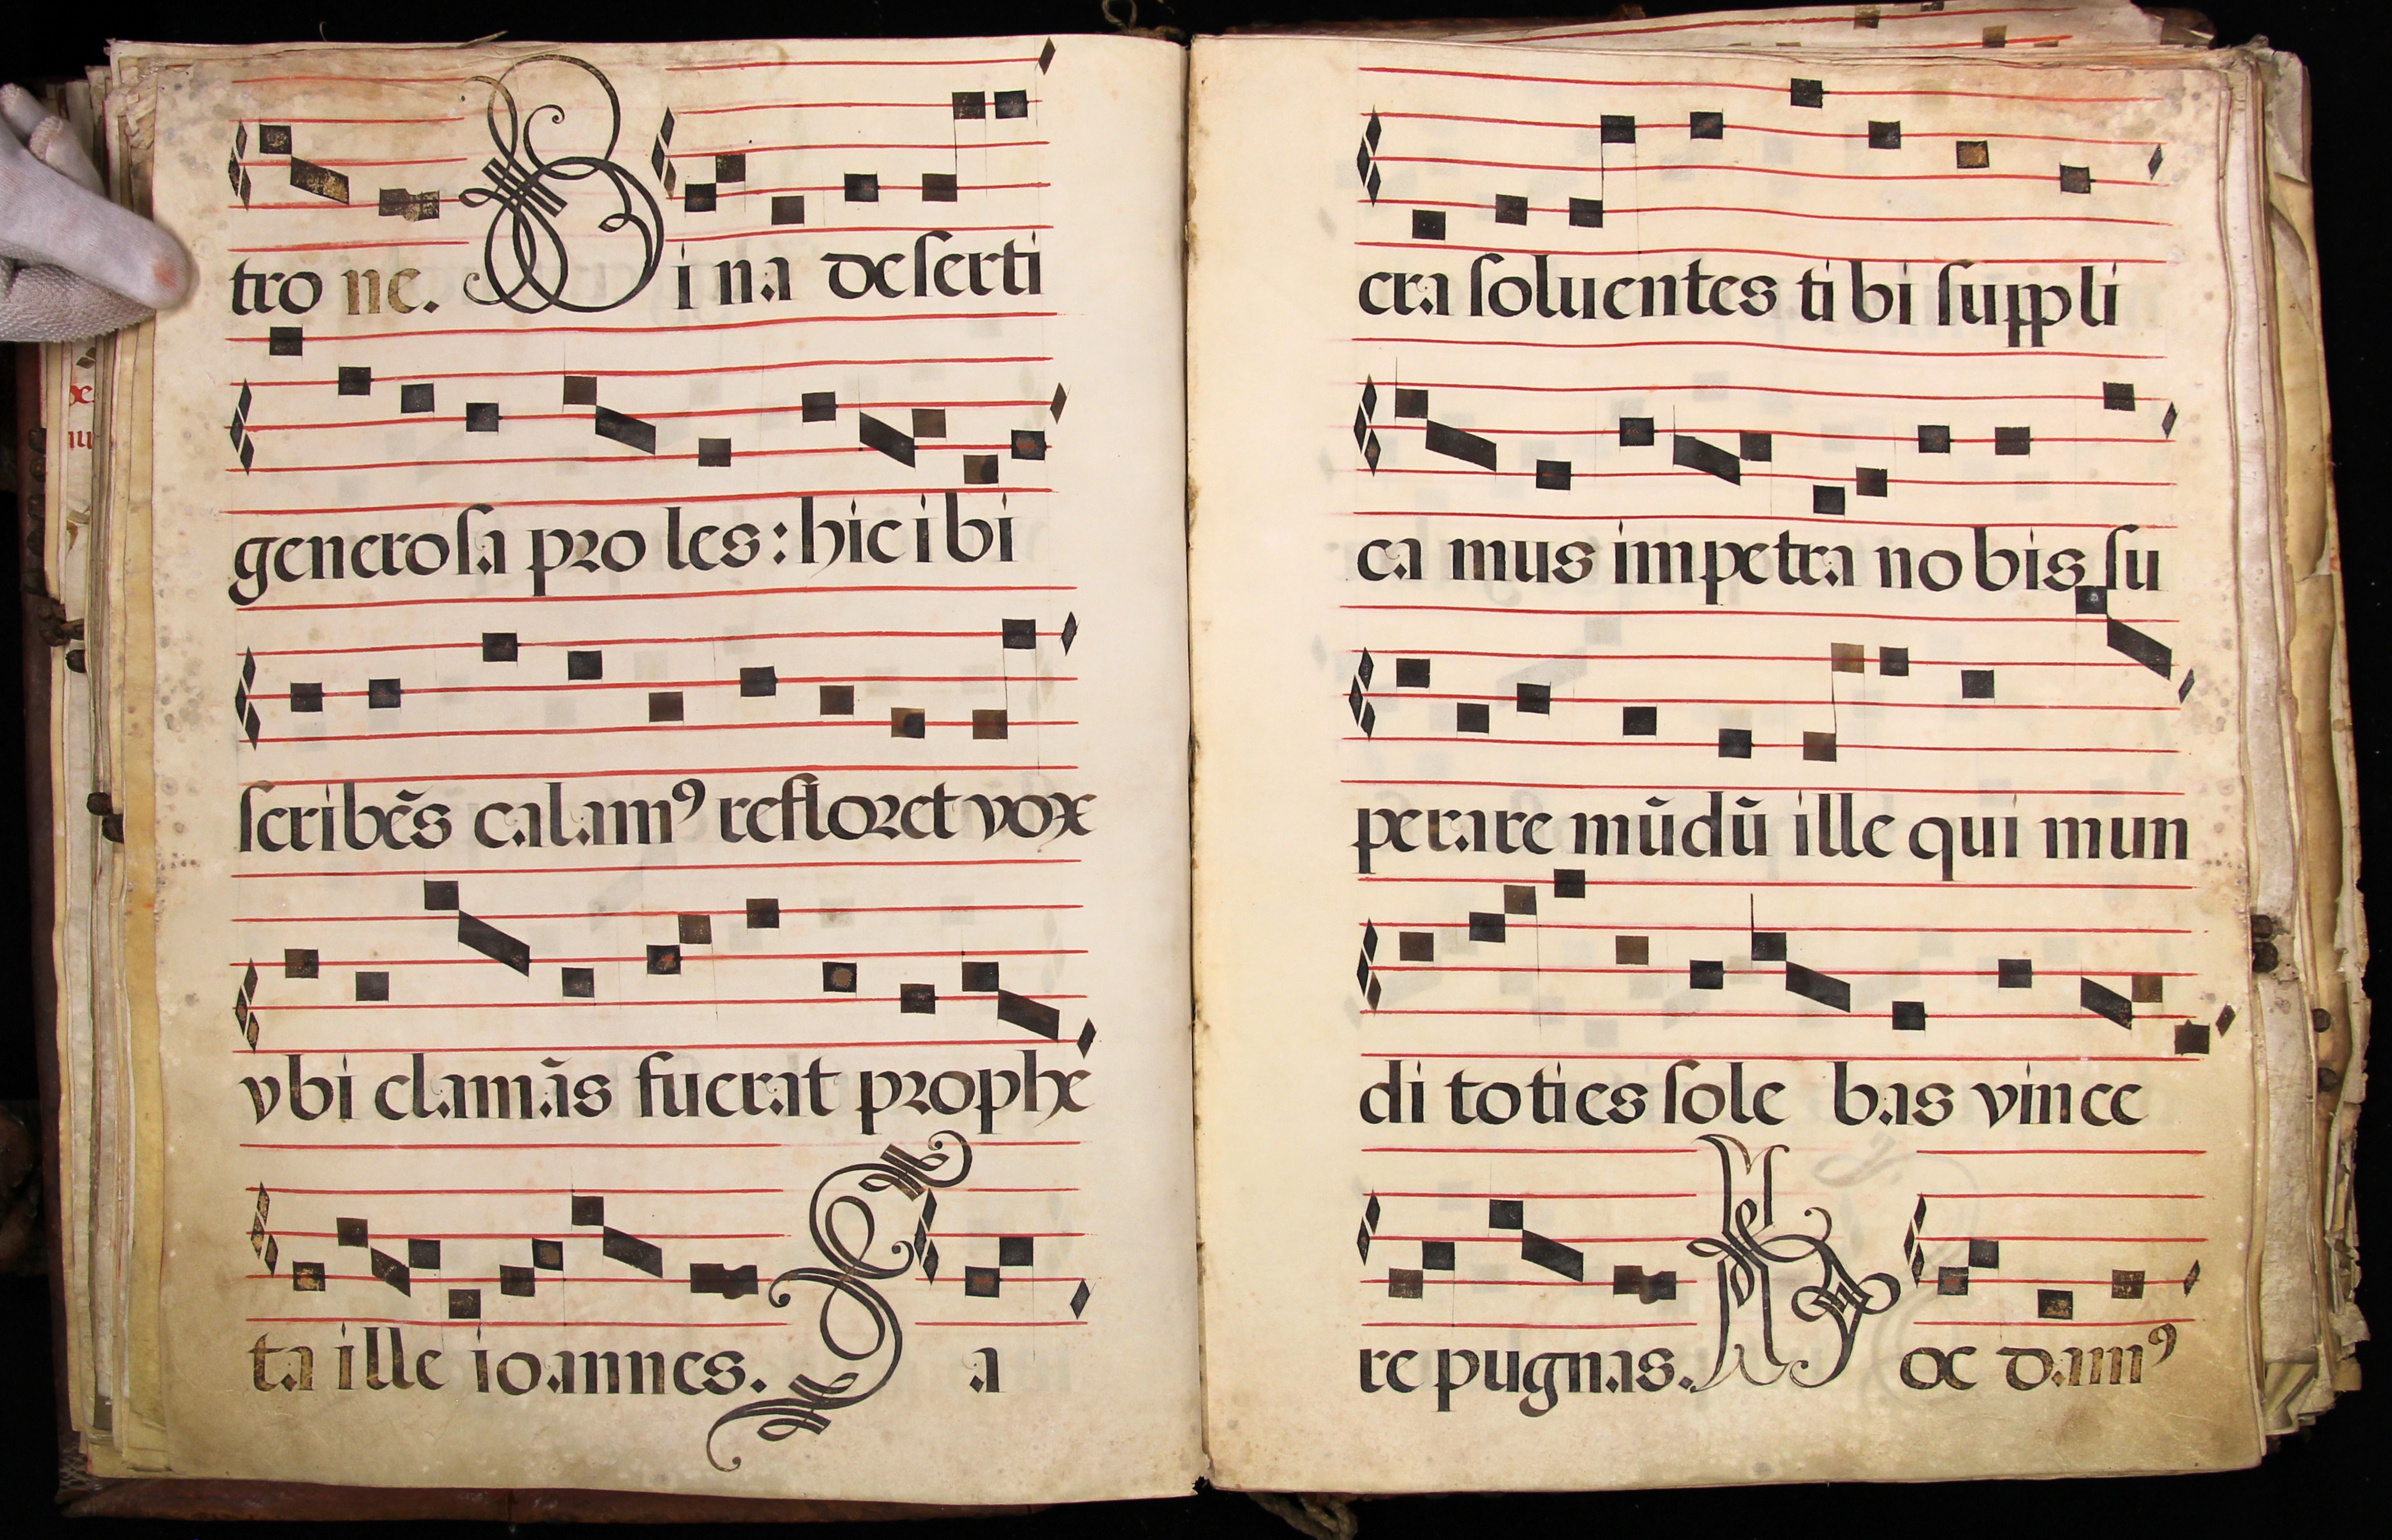 tro ne. Bina deserti
generosa proles: hic ibi
scribe͂s calamꝰ refloret vox
vbi clamãs fuerat prophe
ta ille ioannes. Sa
cra soluentes tibi suppli
ca mus impetra nobis su
perare mũdũ ille qui mun
di toties sole bas vince
re pugnas. Hoc damꝰ